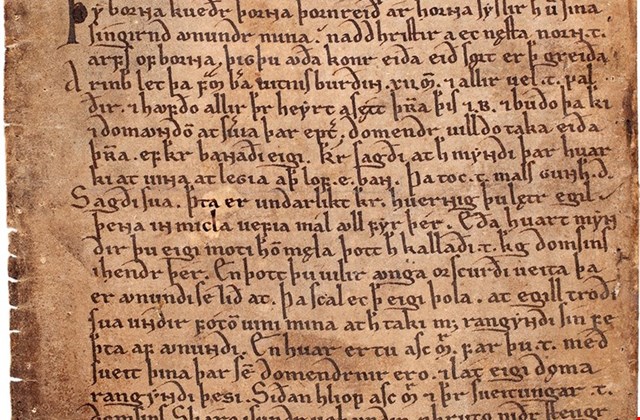 Þẏ borna kuedr þorna þornreid ár horna sẏslir h̄ u sina
singirnd aunundr mina. naddhristir a ec nęsta norn. t.
arfs of borna, þigþu auda konr eida eid sórt er þ̄ greida
Arinb let þa f̄m ba uitnisburdin. xii. m̄. ⁊ allir uel. t. ual
dir. ⁊ haufdo allir þr heyrt a sętt þra þis ⁊ .B. ⁊ budo þa ki
⁊ domaundō at suia þar ept. domendr uilldo taka eida
þra. ef kr̄ banadi eigi. kr̄ sagdi at h̄ mẏndi þar huar
ki at uina at legia a þ̄ lof. e. ban. Þa toc. t. mals gunh. d.
Sagdi sua. þta er undarlikt kr̄. huernig þu lętr egil.
þena in micla uefia mál aull fẏr þer. Eda huart mẏn
dir þu eigi moti hōm męla þott h̄ kalladi. t. kgdomsins
ihendr þer. En þott þu uilir aunga orscurdi ueita þa
er aunundi se lid at. Þa scal ec þ̄ eigi þola. at egill trodi
sua undir fótō uini mina at h̄ taki mꝫ rangẏndi sin fe
þta af aunundi. En huar er tu asc m̄. far þu. t. med
sueit þina þar sē domendrnir ero. ⁊ lat eigi doma
rangẏndi þesi. Sidan hliop asc m̄ ⁊ þr̄ sueitungar t.